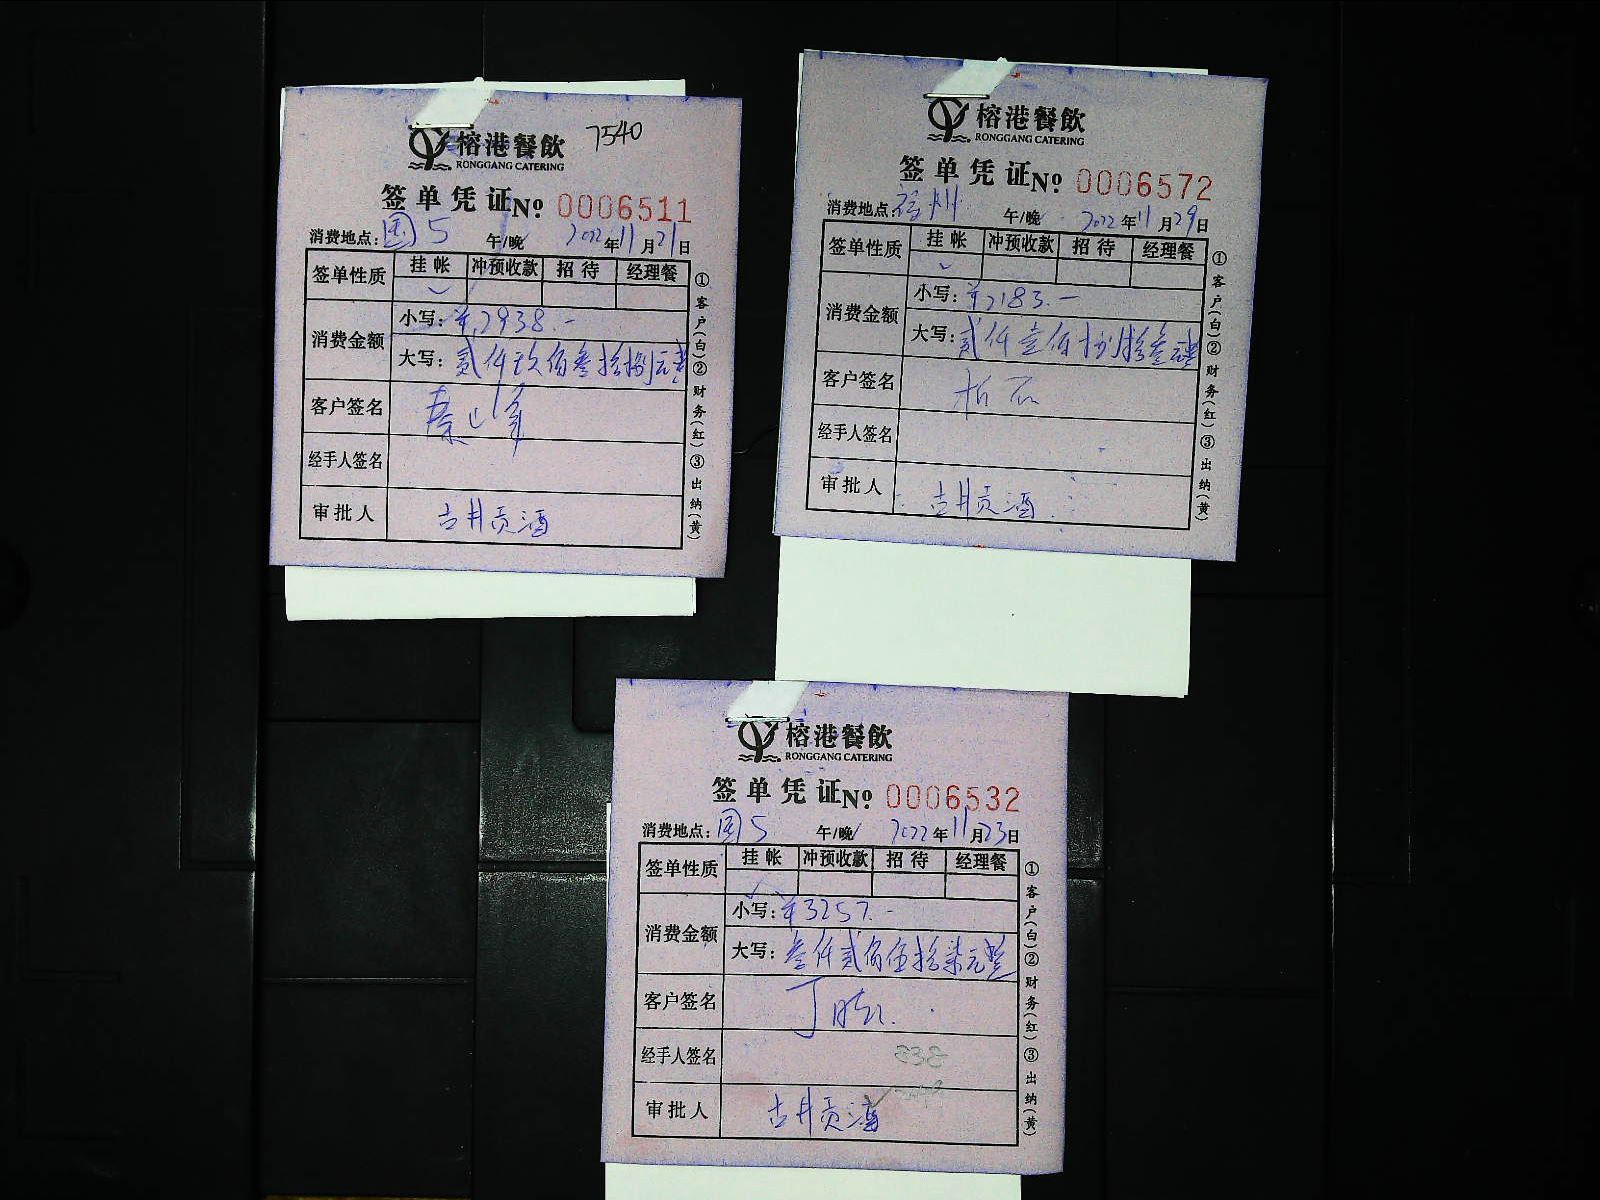 榕港餐飲 7540
RONGGANG CATERING
签单凭证 Nº 0006511
消费地点: 国5 午/晚 2022年11月21日
签单性质 挂帐 冲预收款 招待 经理餐
消费金额
小写: ¥2938.-
大写: 贰仟玖佰叁拾捌元整
客户签名
经手人签名
审批人 古井贡酒
①客户(白)②财务(红)③出纳(黄)
榕港餐飲
RONGGANG CATERING
签单凭证 Nº 0006572
消费地点: 午/晚 2022年11月29日
签单性质 挂帐 冲预收款 招待 经理餐
消费金额
小写: ¥2183.-
大写: 贰仟壹佰捌拾叁元整
客户签名
经手人签名
审批人 古井贡酒
①客户(白)②财务(红)③出纳(黄)
榕港餐飲
RONGGANG CATERING
签单凭证 Nº 0006532
消费地点: 国5 午/晚 2022年11月23日
签单性质 挂帐 冲预收款 招待 经理餐
消费金额
小写: ¥3257.-
大写: 叁仟贰佰伍拾柒元整
客户签名 丁
经手人签名
审批人 古井贡酒
①客户(白)②财务(红)③出纳(黄)